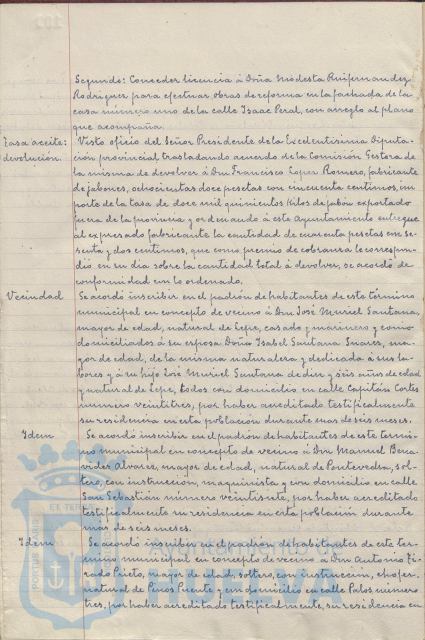 Segundo: Conceder licencia á Doña Modesta Ruifernandez
Rodriguez para efectuar obras de reforma en la fachada de la
casa número uno de la calle Isaac Peral, con arreglo al plano
que acompaña.
Tasa aceite: Visto oficio del Señor Presidente de la Excelentisima Diputa-
devolucion. ción provincial trasladando acuerdo de la Comisión Gestora de
la misma de devolver á Don Francisco Lopez Romero, fabricante
de jabones, ochocientas doce pesetas con cincuenta centimos, im
porte de la tasa de doce mil quinientos kilos de jabón exportado
fuera de la provincia y ordenando á este Ayuntamiento entregue
al expresado fabricante la cantidad de cuarenta pesetas con se-
senta y dos centimos, que como premio de cobranza le correspon-
dió en su dia sobre la cantidad total á devolver, se acordó de
conformidad con lo ordenado.
Vecindad Se acordó inscribir en el padrón de habitantes de este término
municipal en concepto de vecino á Don José Muriel Santana,
mayor de edad, natural de Lepe, casado y marinero y como
domiciliados á su esposa Doña Isabel Santana Suares, ma-
yor de edad, de la misma naturaleza y dedicada á sus la-
bores y á su hijo José Muriel Santana de diez y seis años de edad
y natural de Lepe, todos con domicilio en calle Capitán Cortés
número veintitres, por haber acreditado testificalmente
su residencia en esta población durante mas de seis meses.
Idem Se acordó inscribir en el padrón de habitantes de este termi-
no municipal en concepto de vecino á Don Manuel Bena
vides Alvares, mayor de edad, natural de Pontevedra, sol-
tero, con instrucción, maquinista y con domicilio en calle
San Sebastián número veintisiete, por haber acreditado
testificalmente su residencia en esta población durante
más de seis meses.
Idem Se acordó inscribir en el padrón de habitantes de este ter-
mino municipal en concepto de vecino á Don Antonio Ti-
rado Prieto, mayor de edad, soltero, con instrucción, chofer,
natural de Pinos Puente y con domicilio en calle Palos número
tres, por haber acreditado testificalmente, su residencia en
Ayuntamiento de